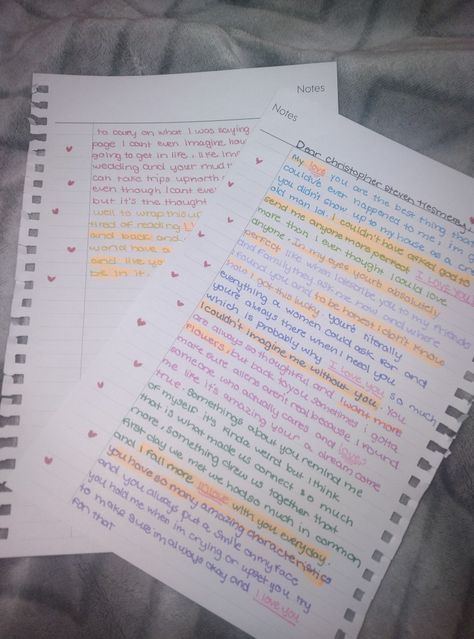 Notes
Dear christopher steven
My love you are the best thing that
could've ever happened to me, i'm glad
you didn't show up to my house as a
old man lol. I couldn't have asked god to
send me anyone more perfect I love you
more than i ever thought i could love
anyone. In my eyes you're absolutely
perfect like when i describe you to my friends
and family they ask me how and where
i found you and to be honest i don't know
how I got this lucky. you're literally
everything a women could ask for and
you're always there when I need you
which is probably why I love you so much
I couldn't imagine me without you. You
are always so thoughtful and I want more
flowers, but back to you sometimes i gotta
make sure aliens aren't real because i found
someone who actually cares and loves
me like it's amazing your a dream come
true. somethings about you remind me
of myself its kinda weird but i think
that is what made us connect so much
more, something drew us together that
first day we met we had so much in common
and I fall more inlove with you everyday.
you have so many amazing characteristics
and you always put a smile on my face
you hold me when im crying or upset you try
to make sure im always okay and I love you
for that
Notes
to carry on what I was saying
page I cant even imagine how
going to get in life, like
wedding and your mud
can take trips up north
even though I cant eve
but it's the thought
well to wrap this up
tired of reading
and back and
world have a
and live yo
be in it.